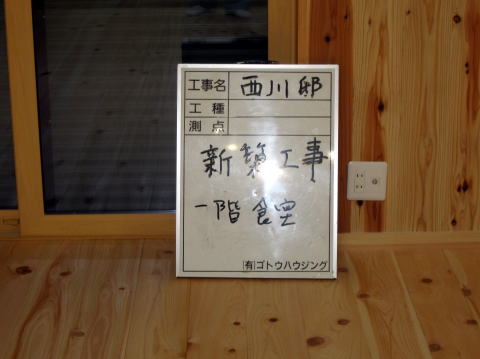 工事名 西川邸
工種
測点
新築工事
一階 食堂
(有)ゴトウハウジング